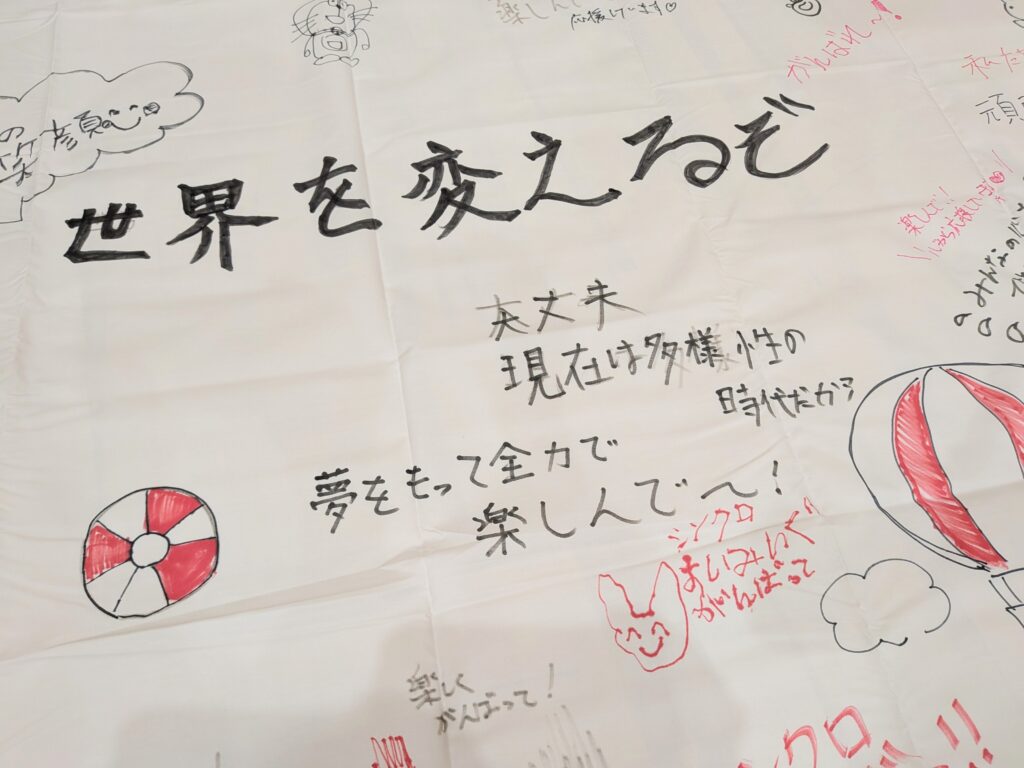 楽しんで
応援しています♡
がんばれ〜!
私た
の
笑顔
頑
世界を変えるぞ
楽しんで!!
みんなの
大丈夫
現在は多様性の
時代だから
夢をもって全力で
楽しんで〜!
シンクロ
がんばって
楽しく
がんばって!
シンクロ